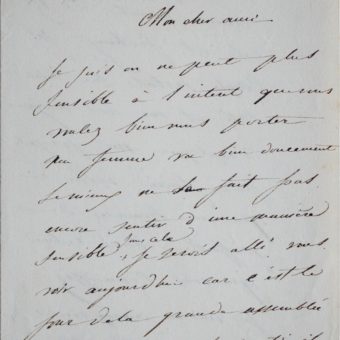 Mon cher ami
Je suis on ne peut plus
sensible à l'intéret que vous
voulez bien nous porter
ma femme va bien doucement
le mieux ne se fait pas
encore sentir d'une manière
sans cela
sensible, je serois allé vous
voir aujourdhui car c'est le
jour de la grande assemblée